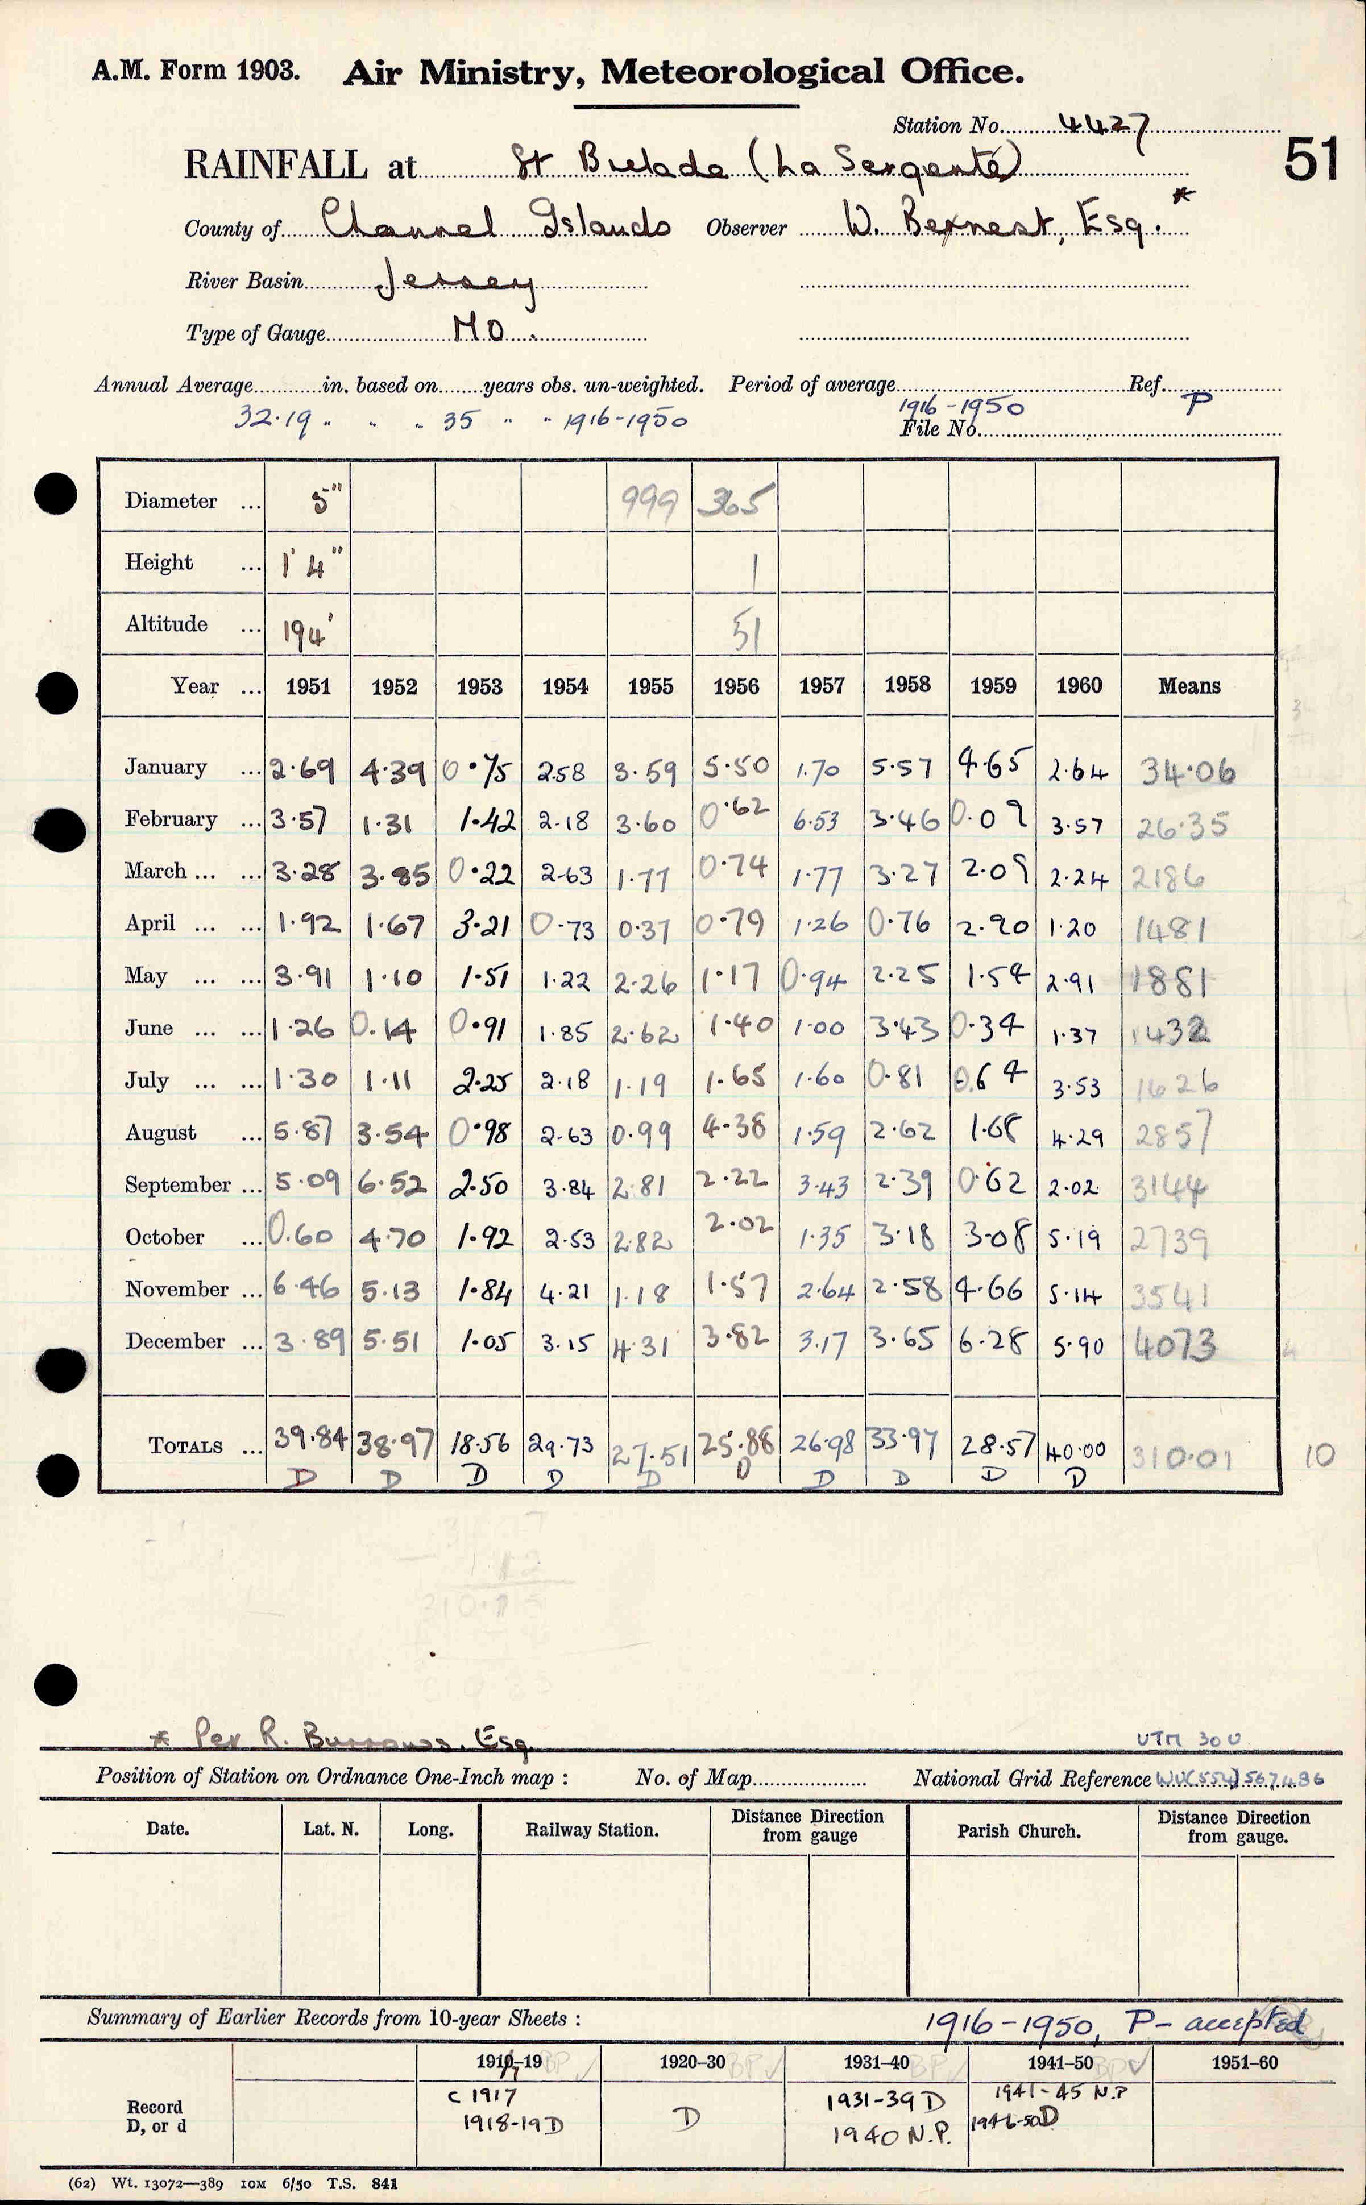 A.M. Form 1903. Air Ministry, Meteorological Office.
Station No. 4427
51
RAINFALL at St Brelade (La Sergenté)
County of Channel Islands Observer W. Bexnest, Esq. *
River Basin Jersey
Type of Gauge MO.
Annual Average in. based on years obs. un-weighted. Period of average Ref. P
32.19 " " " 35 " " 1916-1950 1916-1950
File No.
Diameter ... 5" 999 365
Height ... 1' 4" 1
Altitude ... 194' 51
Year ... 1951 1952 1953 1954 1955 1956 1957 1958 1959 1960 Means
January ... 2.69 4.39 0.75 2.58 3.59 5.50 1.70 5.57 4.65 2.64 34.06
February ... 3.57 1.31 1.42 2.18 3.60 0.62 6.53 3.46 0.09 3.57 26.35
March ... ... 3.28 3.85 0.22 2.63 1.77 0.74 1.77 3.27 2.09 2.24 2186
April ... ... 1.92 1.67 3.21 0.73 0.37 0.79 1.26 0.76 2.90 1.20 1481
May ... ... 3.91 1.10 1.51 1.22 2.26 1.17 0.94 2.25 1.54 2.91 1881
June ... ... 1.26 0.14 0.91 1.85 2.62 1.40 1.00 3.43 0.34 1.37 1432
July ... ... 1.30 1.11 2.25 2.18 1.19 1.65 1.60 0.81 0.64 3.53 1626
August ... 5.87 3.54 0.98 2.63 0.99 4.38 1.59 2.62 1.68 4.29 2857
September ... 5.09 6.52 2.50 3.84 2.81 2.22 3.43 2.39 0.62 2.02 3144
October ... 0.60 4.70 1.92 2.53 2.82 2.02 1.35 3.18 3.08 5.19 2739
November ... 6.46 5.13 1.84 4.21 1.18 1.57 2.64 2.58 4.66 5.14 3541
December ... 3.89 5.51 1.05 3.15 4.31 3.82 3.17 3.65 6.28 5.90 4073
TOTALS ... 39.84 38.97 18.56 29.73 27.51 25.88 26.98 33.97 28.57 40.00 310.01 10
D D D D D D D D D D
* Per R. Burrows, Esq.
UTM 30U
Position of Station on Ordnance One-Inch map : No. of Map National Grid Reference WV(554) 567486
Date. Lat. N. Long. Railway Station. Distance from gauge Direction Parish Church. Distance from gauge. Direction
Summary of Earlier Records from 10-year Sheets : 1916-1950, P- accepted
1917-19 BP 1920-30 BP ✓ 1931-40 BP ✓ 1941-50 BP ✓ 1951-60
Record D, or d
C 1917
1918-19 D
D
1931-39 D
1940 N.P.
1941-45 N.P
1946-50 D
(62) Wt. 13072—389 10M 6/50 T.S. 841